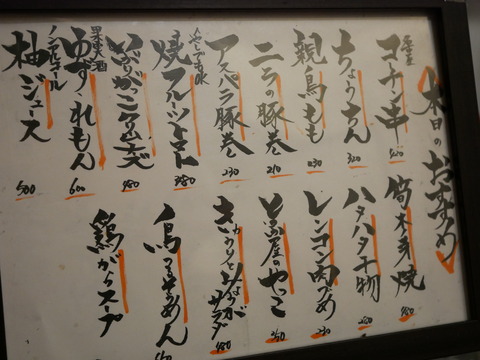 本日のおすすめ
コーチン串
ちょうちん
320
親鳥もも
230
ニラの豚巻
210
アスパラ豚巻
230
焼フルーツトマト
380
いぶりがっこクリームチーズ
480
ゆずれもん
600
ノンアルコール
柚ジュース
500
筍木の芽焼
480
ハタハタ干物
レンコン肉づめ
230
豆富屋のやっこ
きゅうりとみょうがサラダ
480
鳥そうめん
鶏がらスープ